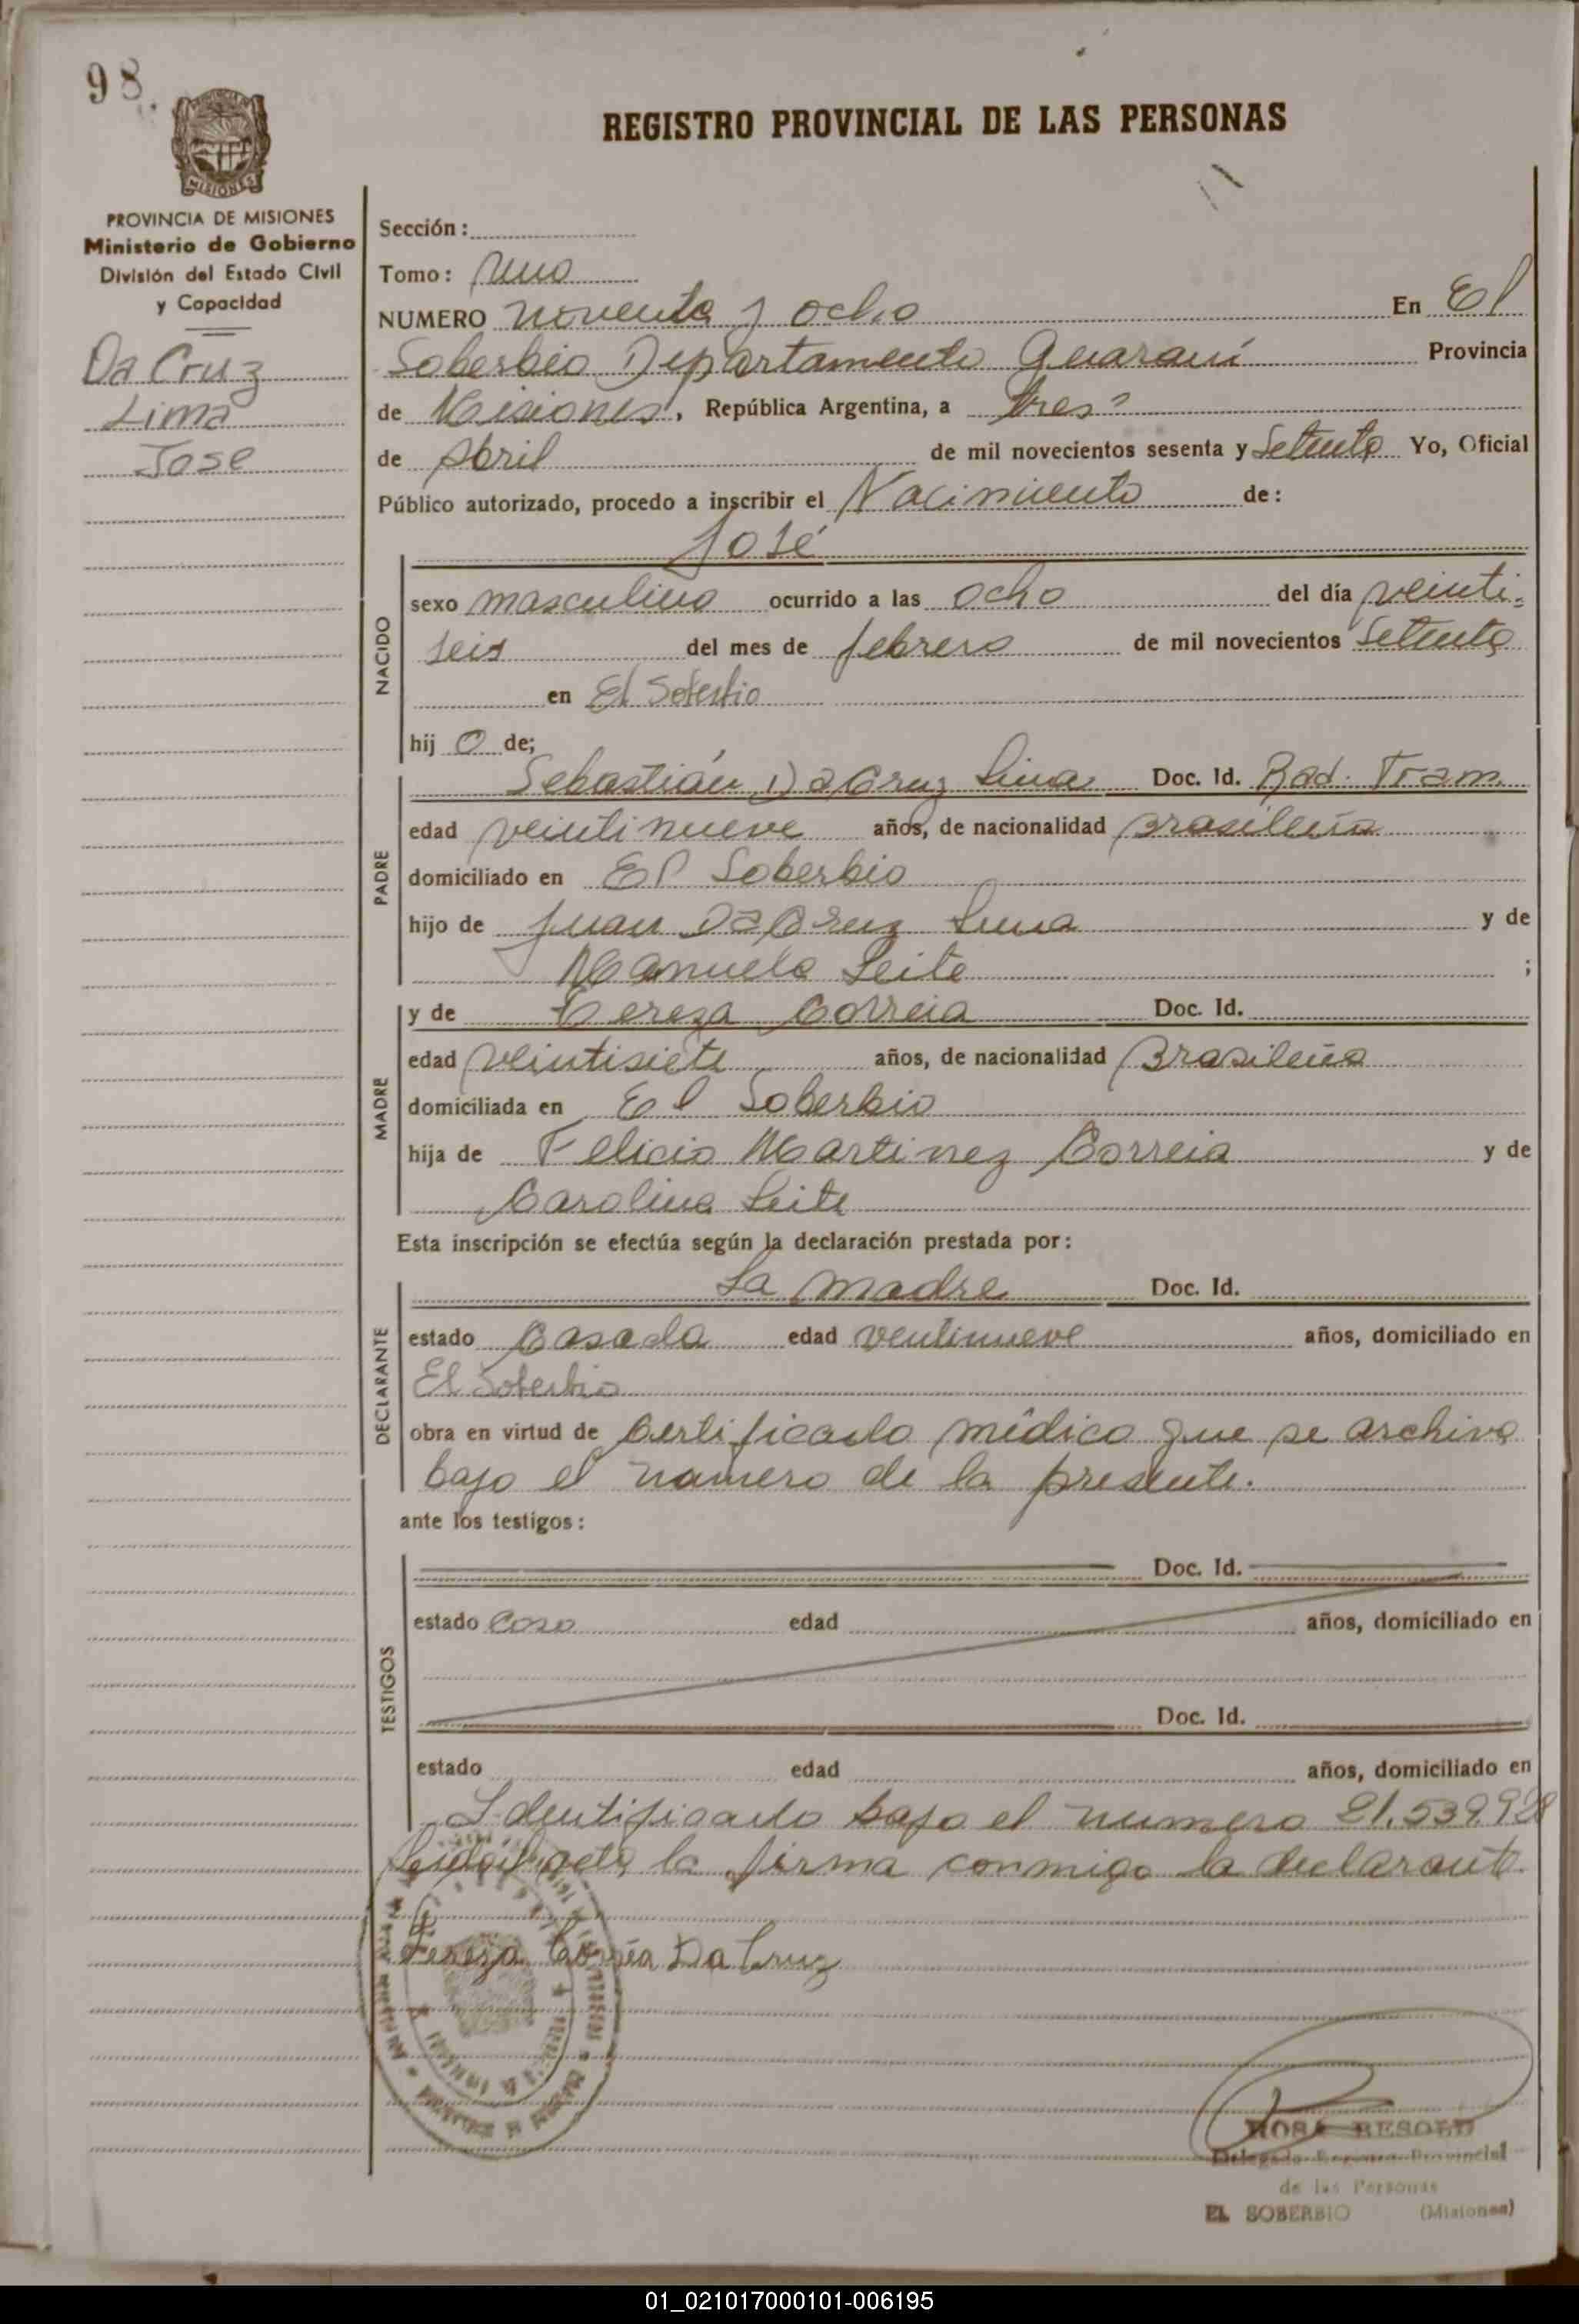 98.
REGISTRO PROVINCIAL DE LAS PERSONAS
MISIONES
PROVINCIA DE MISIONES
Ministerio de Gobierno
División del Estado Civil
y Capacidad
Da Cruz
Lima
Jose
Sección:
Tomo: Uno
NUMERO noventa y ocho En El
Soberbio Departamento Guaraní Provincia
de Misiones, República Argentina, a tres
de Abril de mil novecientos sesenta y Setenta Yo, Oficial
Público autorizado, procedo a inscribir el Nacimiento de:
José
NACIDO
sexo masculino ocurrido a las ocho del día veinti-
seis del mes de febrero de mil novecientos Setenta
en El Soberbio
hij o de;
PADRE
Sebastián Da Cruz Lima Doc. Id. Rad. Tram.
edad veintinueve años, de nacionalidad Brasileña
domiciliado en El Soberbio
hijo de Juan Da Cruz Lima y de
Manuela Leite ;
MADRE
y de Tereza Correia Doc. Id.
edad veintisiete años, de nacionalidad Brasileña
domiciliada en El Soberbio
hija de Felicio Martinez Correia y de
Carolina Leite
Esta inscripción se efectúa según la declaración prestada por:
DECLARANTE
La madre Doc. Id.
estado Casada edad ventinueve años, domiciliado en
El Soberbio
obra en virtud de Certificado médico que se archiva
bajo el numero de la presente.
ante los testigos:
TESTIGOS
Doc. Id.
estado edad años, domiciliado en
Doc. Id.
estado edad años, domiciliado en
Identificado bajo el numero 21.539.928
Leida el acta la firma conmigo la declarante.
Tereza Correia Da Cruz
ROSA BESOLD
Delegada Registro Provincial
de las Personas
EL SOBERBIO (Misiones)
01_021017000101-006195